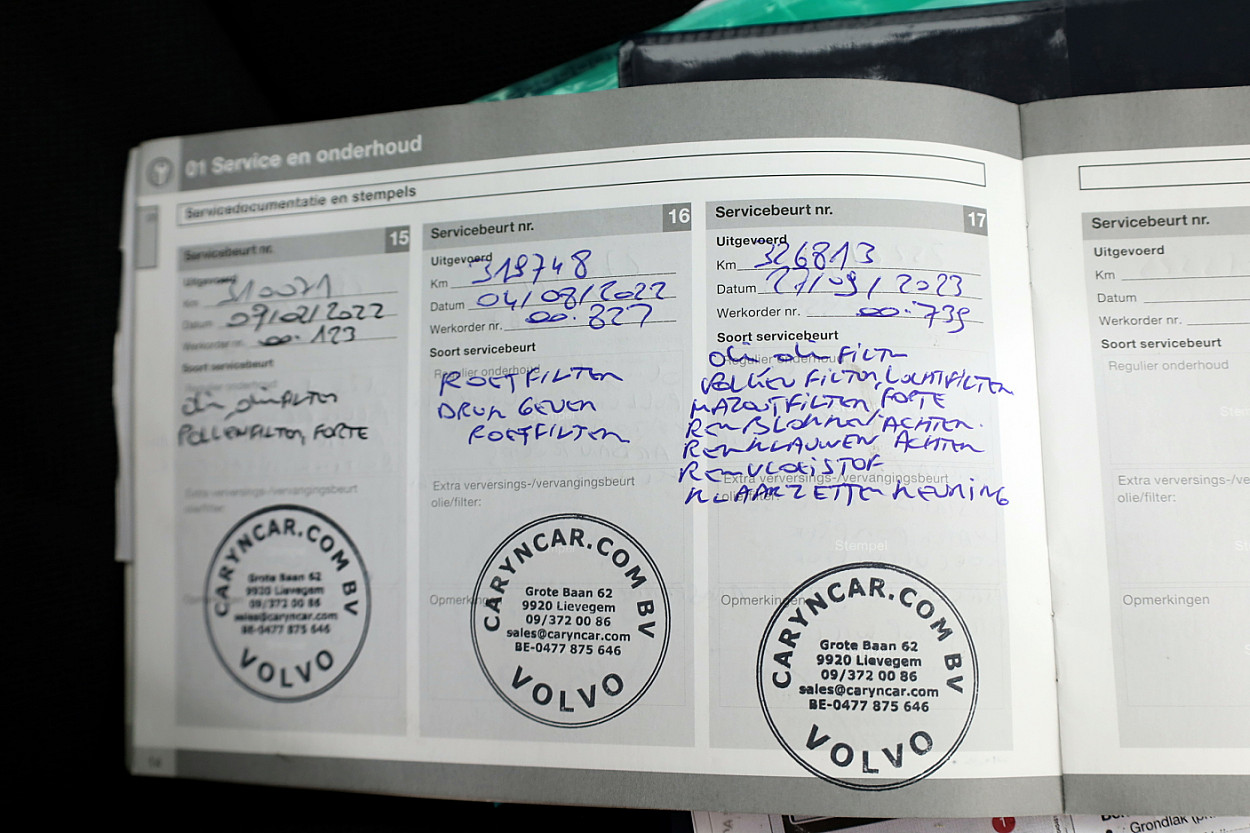 01 Service en onderhoud
Servicedocumentatie en stempels
Servicebeurt nr. 15
Uitgevoerd
Km 310071
Datum 07/02/2022
Werkorder nr. 00.123
Soort servicebeurt
Regulier onderhoud
POLLENFILTER, FORTE
Extra verversings-/vervangingsbeurt
olie/filter:
CARYNCAR.COM BV
Grote Baan 62
9920 Lievegem
09/372 00 86
sales@caryncar.com
BE-0477 875 646
VOLVO
14
Servicebeurt nr. 16
Uitgevoerd
Km 319748
Datum 04/08/2022
Werkorder nr. 00.827
Soort servicebeurt
Regulier onderhoud
ROETFILTER
DRUK GEVEN
ROETFILTER
Extra verversings-/vervangingsbeurt
olie/filter:
Opmerkingen
CARYNCAR.COM BV
Grote Baan 62
9920 Lievegem
09/372 00 86
sales@caryncar.com
BE-0477 875 646
VOLVO
Servicebeurt nr. 17
Uitgevoerd
Km 326813
Datum 27/09/2023
Werkorder nr. 00.739
Soort servicebeurt
Regulier onderhoud
OLIE OLIE FILTER
POLLEN FILTER, LUCHTFILTER
MAZOUTFILTER, FORTE
REMBLOKKEN ACHTER.
REMKLAUWEN ACHTER
REMVLOEISTOF
KLAARZETTEN KEURING
Extra verversings-/vervangingsbeurt
olie/filter:
Stempel
Opmerkingen
CARYNCAR.COM BV
Grote Baan 62
9920 Lievegem
09/372 00 86
sales@caryncar.com
BE-0477 875 646
VOLVO
Servicebeurt nr.
Uitgevoerd
Km
Datum
Werkorder nr.
Soort servicebeurt
Regulier onderhoud
Extra verversings-/ve
olie/filter:
Opmerkingen
1
Grondlak